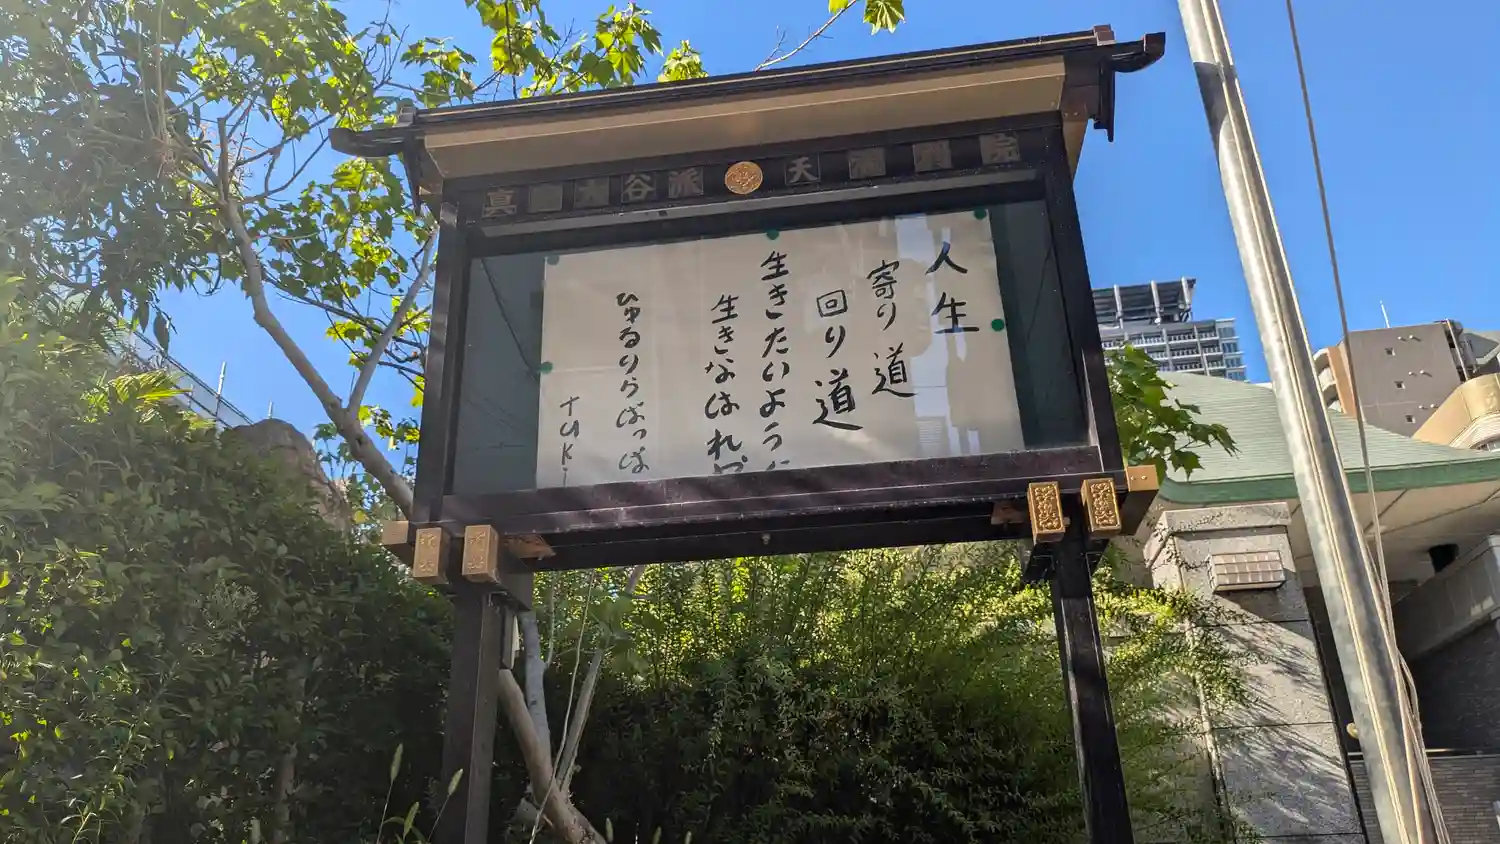 真宗大谷派 天満別院
人生
寄り道
回り道
生きたいように
生きなはれや
ひゅるりらぱっぱ
TUKi